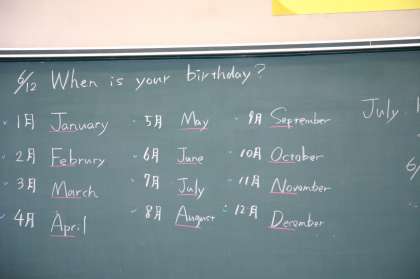 6/12 When is your birthday?
1月 January
2月 Februry
3月 March
4月 April
5月 May
6月 June
7月 July
8月 August
9月 September
10月 October
11月 November
12月 December
July
6/